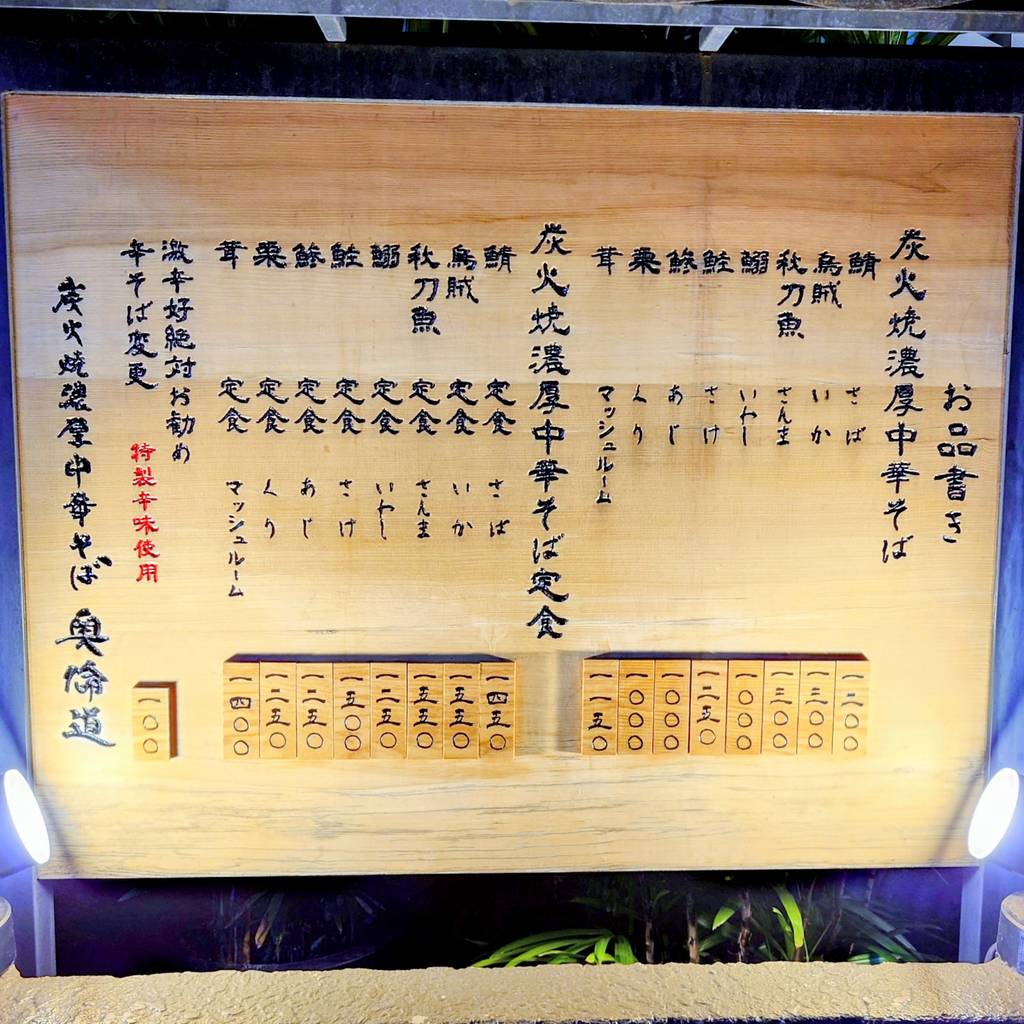 お品書き
炭火焼濃厚中華そば
鯖 さば 一二〇〇
烏賊 いか 一三〇〇
秋刀魚 さんま 一三〇〇
鰯 いわし 一〇〇〇
鮭 さけ 一二五〇
鯵 あじ 一〇〇〇
栗 くり 一〇〇〇
茸 マッシュルーム 一一五〇
炭火焼濃厚中華そば定食
鯖 定食 さば 一四五〇
烏賊 定食 いか 一五五〇
秋刀魚 定食 さんま 一五五〇
鰯 定食 いわし 一二五〇
鮭 定食 さけ 一五〇〇
鯵 定食 あじ 一二五〇
栗 定食 くり 一二五〇
茸 定食 マッシュルーム 一四〇〇
激辛好絶対お勧め
辛そば変更 特製辛味使用 一〇〇
炭火焼濃厚中華そば 奥倫道